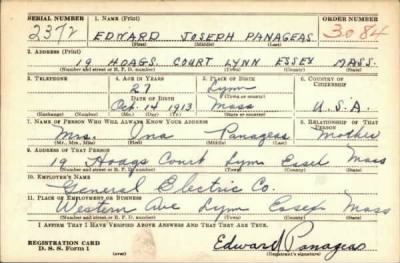 SERIAL NUMBER 1. NAME (Print) ORDER NUMBER
2372 EDWARD JOSEPH PANAGEAS 3084
(First) (Middle) (Last)
2. ADDRESS (Print)
19 HOAGS COURT LYNN ESSEX MASS.
(Number and street or R. F. D. number) (Town) (County) (State)
3. TELEPHONE 4. AGE IN YEARS 5. PLACE OF BIRTH 6. COUNTRY OF CITIZENSHIP
27 Lynn
DATE OF BIRTH (Town or county)
Oct. 14 1913 Mass U.S.A.
(Exchange) (No.) (Mo.) (Day) (Yr.) (State or country)
7. NAME OF PERSON WHO WILL ALWAYS KNOW YOUR ADDRESS 8. RELATIONSHIP OF THAT PERSON
Mrs. Ina Panageas Mother
(Mr., Mrs., Miss) (First) (Middle) (Last)
9. ADDRESS OF THAT PERSON
19 Hoags Court Lynn Essex Mass
(Number and street or R. F. D. number) (Town) (County) (State)
10. EMPLOYER'S NAME
General Electric Co.
11. PLACE OF EMPLOYMENT OR BUSINESS
Western Ave Lynn Essex Mass
(Number and street or R. F. D. number) (Town) (County) (State)
I AFFIRM THAT I HAVE VERIFIED ABOVE ANSWERS AND THAT THEY ARE TRUE.
REGISTRATION CARD
D. S. S. Form 1 (over) Edward Panageas
(Registrant's signature)